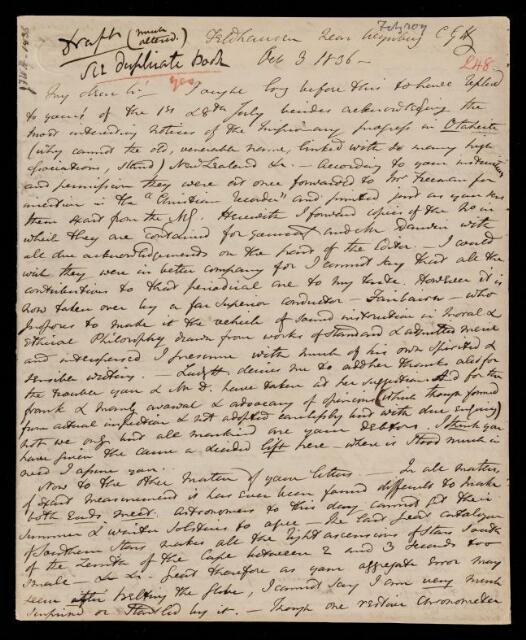 Draft (much altered.)
See Duplicate Book
yes
Feldhausen near Wynberg C G H
Fitzroy
Oct 3 1836 -
248
My dear Sir - I ought long before this to have replied
to yours of the 1st & 8th July besides acknowledging the
most interesting notices of the Missionary progress in Otaheite
(Why cannot the old, venerable name, linked with so many high
associations, stand) New Zealand &c. - According to your instructions
and permission they were at once forwarded to Mr Freeman for
insertion in the "Christian Recorder" and printed just as your
them apart from the MS. Herewith I forward copies of the No in
which they are contained for yourself and Mr Darwin with
all due acknowledgements on the part of the Editor - I could
wish they were in better company for I cannot say that all the
contributions to that periodical are to my taste. However it is
now taken over by a far superior conductor - Fairbairn - who
proposes to make it the vehicle of sound instruction in Moral &
Ethical Philosophy drawn from works of standard & admitted merit
and interspersed I presume with much of his own spirited &
sensible writing. - Lady H desires me to add her thanks also for
the trouble you & Mr D. have taken at her suggestion. And for the
frank & manly avowal & advocacy of opinions (which though formed
from actual inspection & not adopted carelessly but with due enquiry)
not we only but all mankind are your debtors. I think you
have given the cause a decided lift here - where it stood much in
need I assure you.
Now to the other matter of your letters - In all matters
of exact measurement it has ever been found difficult to make
both Ends meet. Astronomers to this day cannot get their
Summer & Winter Solstices to agree - The last great catalogue
of Southern Stars makes all the right ascensions of Stars South
of the Zenith of the Cape between 2 and 3 seconds too
small - &c &c. Great therefore as your aggregate error may
seem after belting the Globe, I cannot say I am very much
surprised or startled by it. - Though one restive Chronometer